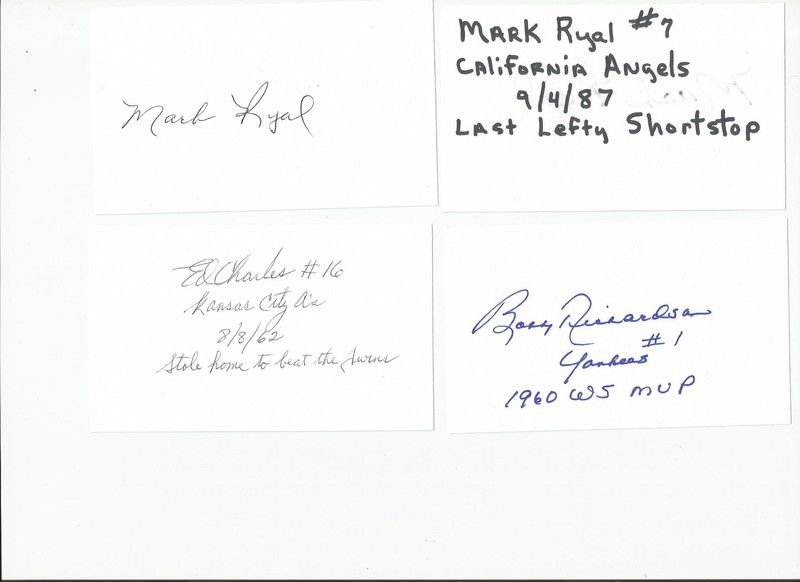 Mark Ryal
MARK Ryal #7
CALIFORNIA Angels
9/4/87
LAST Lefty Shortstop
Ed Charles #16
Kansas City A's
8/8/62
Stole home to beat the Twins
Bobby Richardson
#1
Yankees
1960 WS MVP